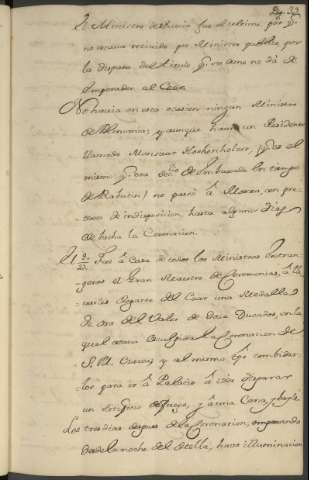 El Ministro de Suecia fue el ultimo por q.
no era recivido por Ministro publico por
la disputa del titulo q. no da de
Emperador al Czar.
No havia en esta ocasion ningun Ministro
de Alemania, y aunque havia un Residente
llamado Monsieur Hochenholzer,
mismo q. era de Embaxada en tiempo
de Rabutin) no passó á Moscou, con pre-
texto de indisposicion, hasta algunos dias
de hecha la Coronacion.
Fue á casa de todos los Ministros Estran-
geros el Gran Maestro de Ceremonias, á lle-
varles de parte del Czar una Medalla
de oro del Valor de doce Ducados, en la
qual estava esculpida la Coronacion de
S. M. Czariana y al mismo tpo. combidar-
los para ir á Palacio á ver disparar
un Artificio de fuego, y á una Cena, y bayle
Los tres dias despues de la Coronacion, empezando
desde la noche del de ella, huvo illuminacion